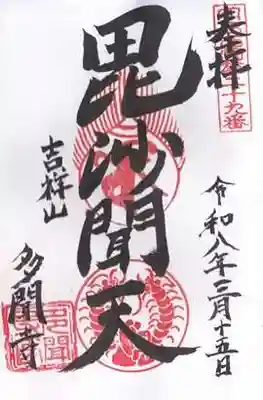 奉拝
毘沙門天
吉祥山
多聞寺
令和八年二月十五日
多聞